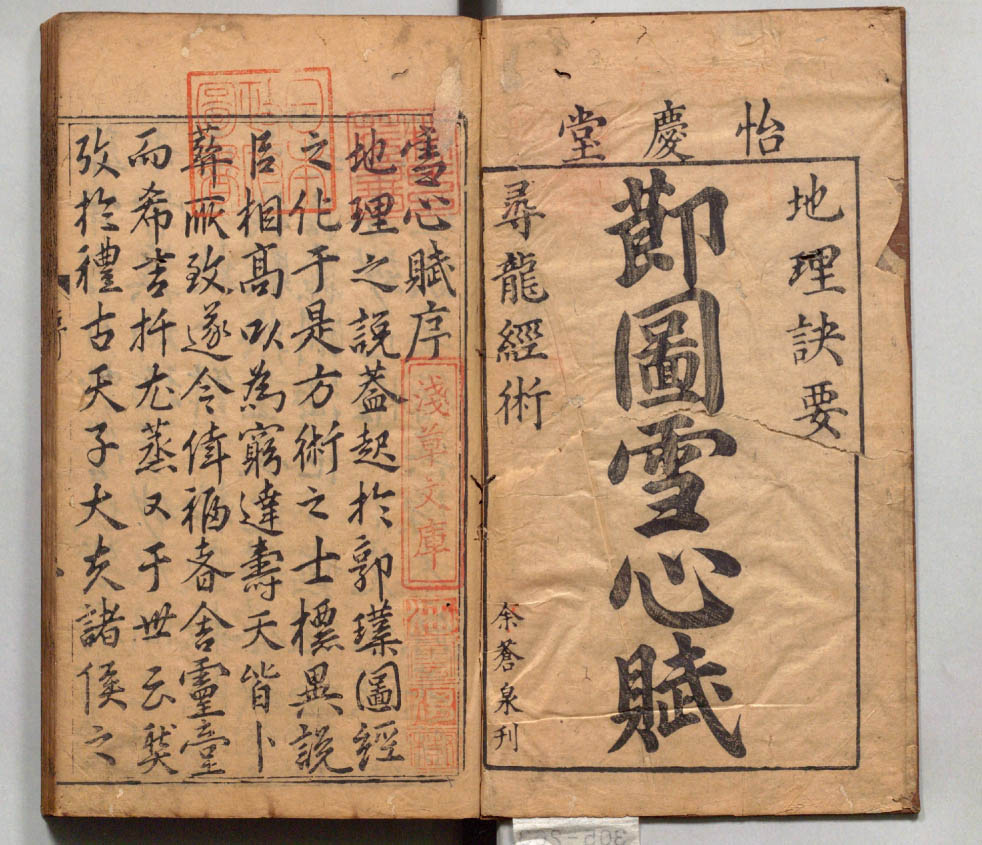 怡慶堂
地理訣要
節圖雪心賦
尋龍經術
余蒼泉刊
雪心賦序
地理之說蓋起於郭璞圖經
之化于是方術之士標異說
相高以為窮達壽夭皆卜
葬所致遂令倖福者舍靈臺
而希吉扦尤蒸又于世云
攷於禮古天子大夫諸侯之
淺草文庫